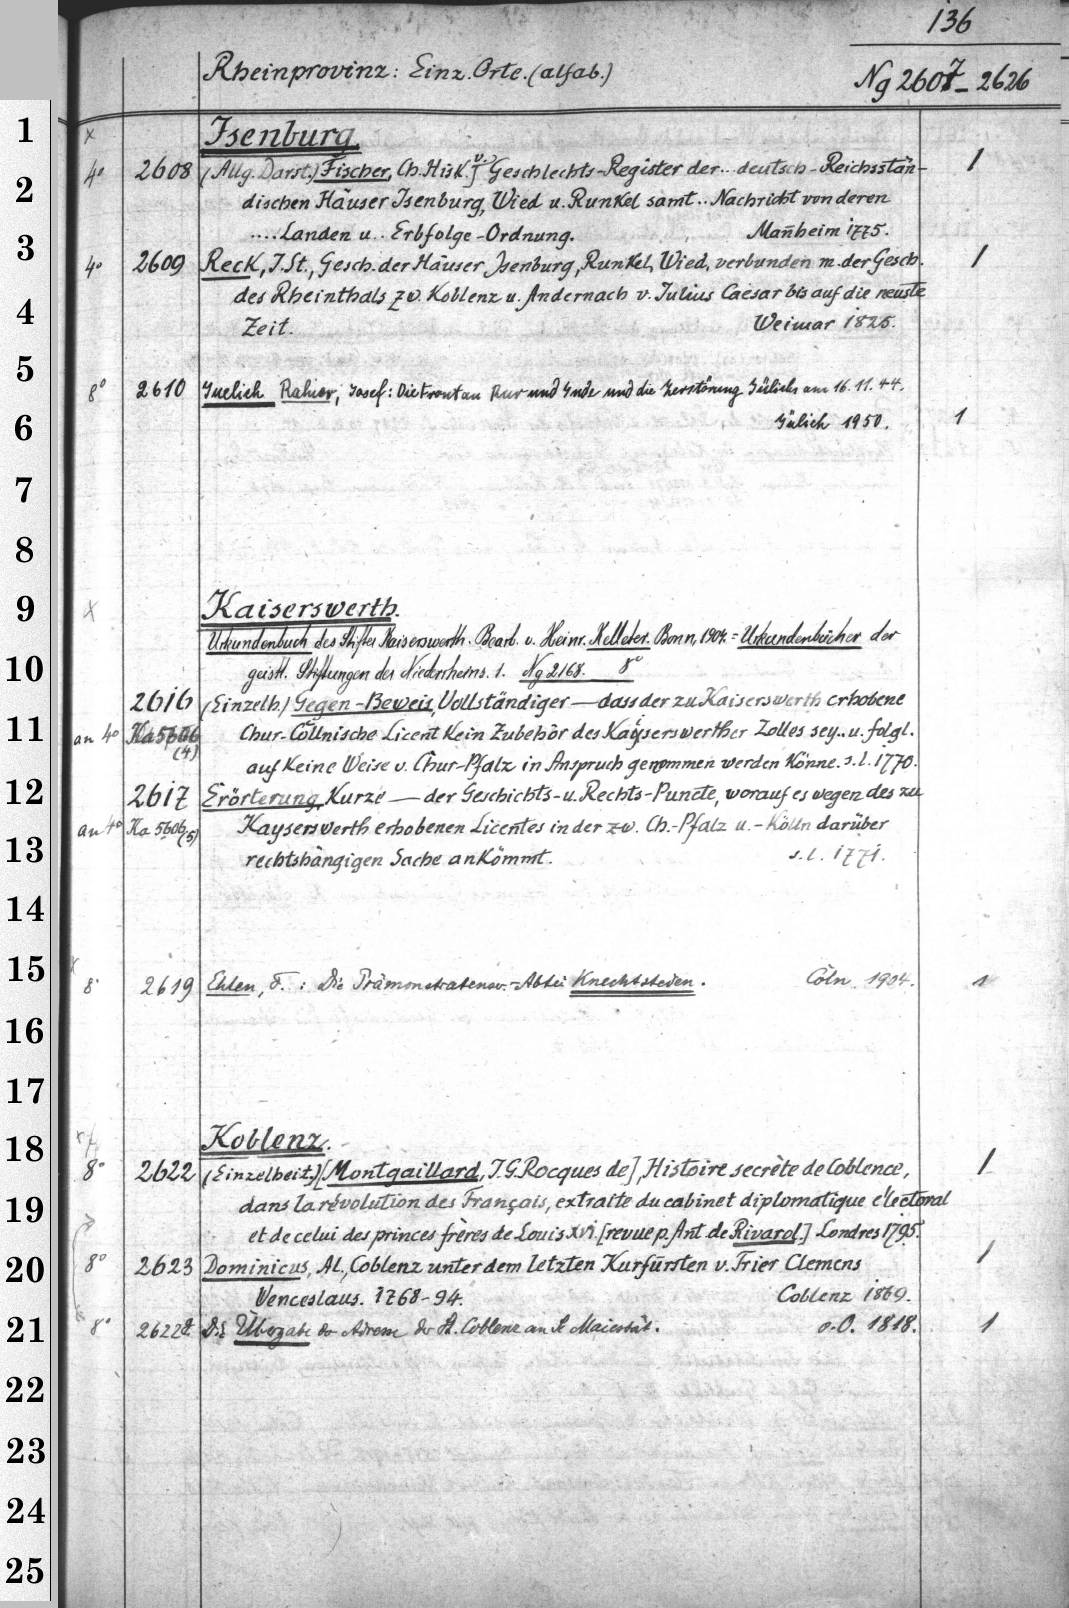 136
Rheinprovinz: Einz. Orte. (alfab.)
Ng 2607-2626
1 x Isenburg.
4° 2608 (Allg. Darst.) Fischer, Ch. Hisk. v.] Geschlechts-Register der .. deutsch-Reichsstän- 1
2 dischen Häuser Isenburg, Wied u. Runkel samt .. Nachricht von deren
3 .... Landen u .. Erbfolge-Ordnung. Mañheim 1775.
4° 2609 Reck, J. St., Gesch. der Häuser Isenburg, Runkel, Wied, verbunden m. der Gesch. 1
4 des Rheinthals zw. Koblenz u. Andernach v. Julius Caesar bis auf die neuste
Zeit. Weimar 1825.
5
8° 2610 Juelich Rahier, Josef: Die Front an Rur und Inde und die Zerstörung Jülichs am 16.11.44.
6 Jülich 1950. 1
7
8
9 x Kaiserswerth.
Urkundenbuch des Stiftes Kaiserswerth. Bearb. v. Heinr. Kelleter. Bonn, 1904. = Urkundenbücher der
10 geistl. Stiftungen des Niederrheins. 1. Ng 2168. 8°
2616 (Einzelh.) Gegen-Beweis, Vollständiger — dass der zu Kaiserswerth erhobene
11 an 4° Ka 5606 (4) Chur-Cöllnische Licent kein Zubehör des Kaÿserswerther Zolles sey .. u. folgl.
auf keine Weise v. Chur-Pfalz in Anspruch genommen werden könne. s.l. 1770.
12 2617 Erörterung, Kurze — der Geschichts- u. Rechts-Puncte, worauf es wegen des zu
an 4° Ka 5606 (5) Kayserswerth erhobenen Licentes in der zw. Ch.-Pfalz u. - Kölln darüber
13 rechtshängigen Sache ankömmt. s.l. 1771.
14
15 x
8° 2619 Ehlen, F.: Die Prämonstratenser-Abtei Knechtsteden. Cöln 1904. 1
16
17
18 x Koblenz.
8° 2622 (Einzelheit.) [Montgaillard, J. G. Rocques de], Histoire secrète de Coblence, 1
19 dans la révolution des Français, extraite du cabinet diplomatique électoral
et de celui des princes frères de Louis XVI. [revue p. Ant. de Rivarol.] Londres 1795.
20 8° 2623 Dominicus, Al., Coblenz unter dem letzten Kurfürsten v. Trier Clemens 1
Wenceslaus. 1768-94. Coblenz 1869.
21 8° 2622 Die Übergabe der Adresse der St. Coblenz an Se Maiestät. o.O. 1818. 1
22
23
24
25